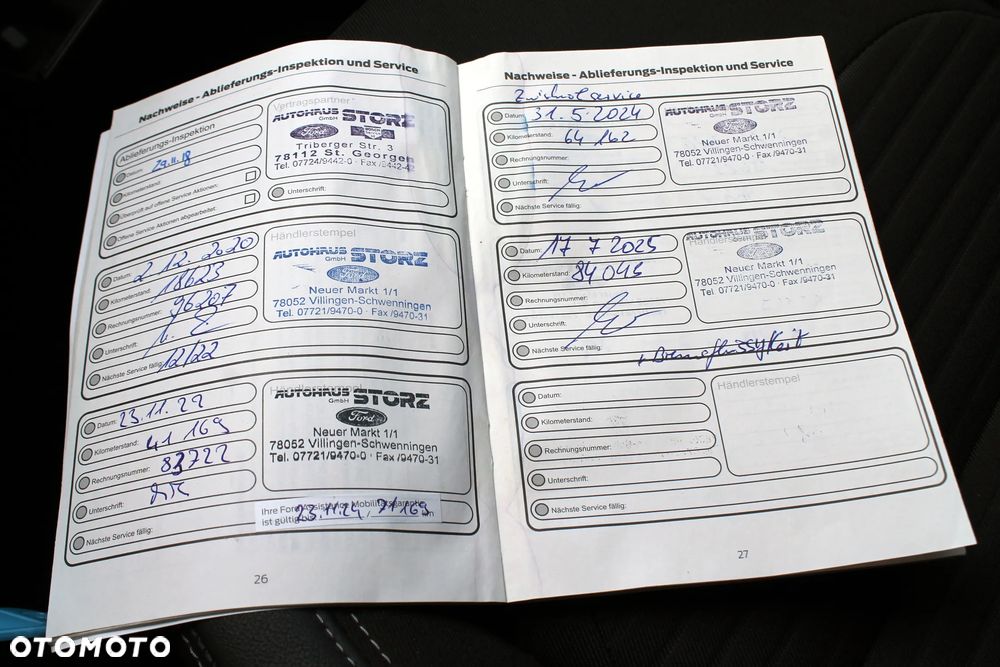 Nachweise - Ablieferungs-Inspektion und Service
Ablieferungs-Inspektion
Datum: 29.11.18
Kilometerstand:
Überprüft auf offene Service Aktionen:
Offene Service Aktionen abgearbeitet:
Vertragspartner
AUTOHAUS STORZ
GmbH
Ford
Triberger Str. 3
78112 St. Georgen
Tel. 07724/9442-0 · Fax /9442-42
Unterschrift:
Datum: 2 12. 2020
Kilometerstand: 18623
Rechnungsnummer: 96207
Unterschrift:
Nächste Service fällig: 12/22
Händlerstempel
AUTOHAUS STORZ
GmbH
Ford
Neuer Markt 1/1
78052 Villingen-Schwenningen
Tel. 07721/9470-0 · Fax /9470-31
Datum: 23.11.22
Kilometerstand: 41 169
Rechnungsnummer: 83722
Unterschrift:
Nächste Service fällig:
Händlerstempel
AUTOHAUS STORZ
GmbH
Ford
Neuer Markt 1/1
78052 Villingen-Schwenningen
Tel. 07721/9470-0 · Fax /9470-31
Ihre Ford Assistance Mobilitätsgarantie
ist gültig 23.11.24, 71169 km
26
Nachweise - Ablieferungs-Inspektion und Service
Datum: 31.5.2024
Kilometerstand: 64 162
Rechnungsnummer:
Unterschrift:
Nächste Service fällig:
AUTOHAUS STORZ
GmbH
Ford
Neuer Markt 1/1
78052 Villingen-Schwenningen
Tel. 07721/9470-0 · Fax /9470-31
Datum: 17 7 2025
Kilometerstand: 84046
Rechnungsnummer:
Unterschrift:
Nächste Service fällig:
+ Bremsflüssigkeit
Händlerstempel
AUTOHAUS STORZ
GmbH
Ford
Neuer Markt 1/1
78052 Villingen-Schwenningen
Tel. 07721/9470-0 · Fax /9470-31
Datum:
Kilometerstand:
Rechnungsnummer:
Unterschrift:
Nächste Service fällig:
Händlerstempel
27
OTOMOTO